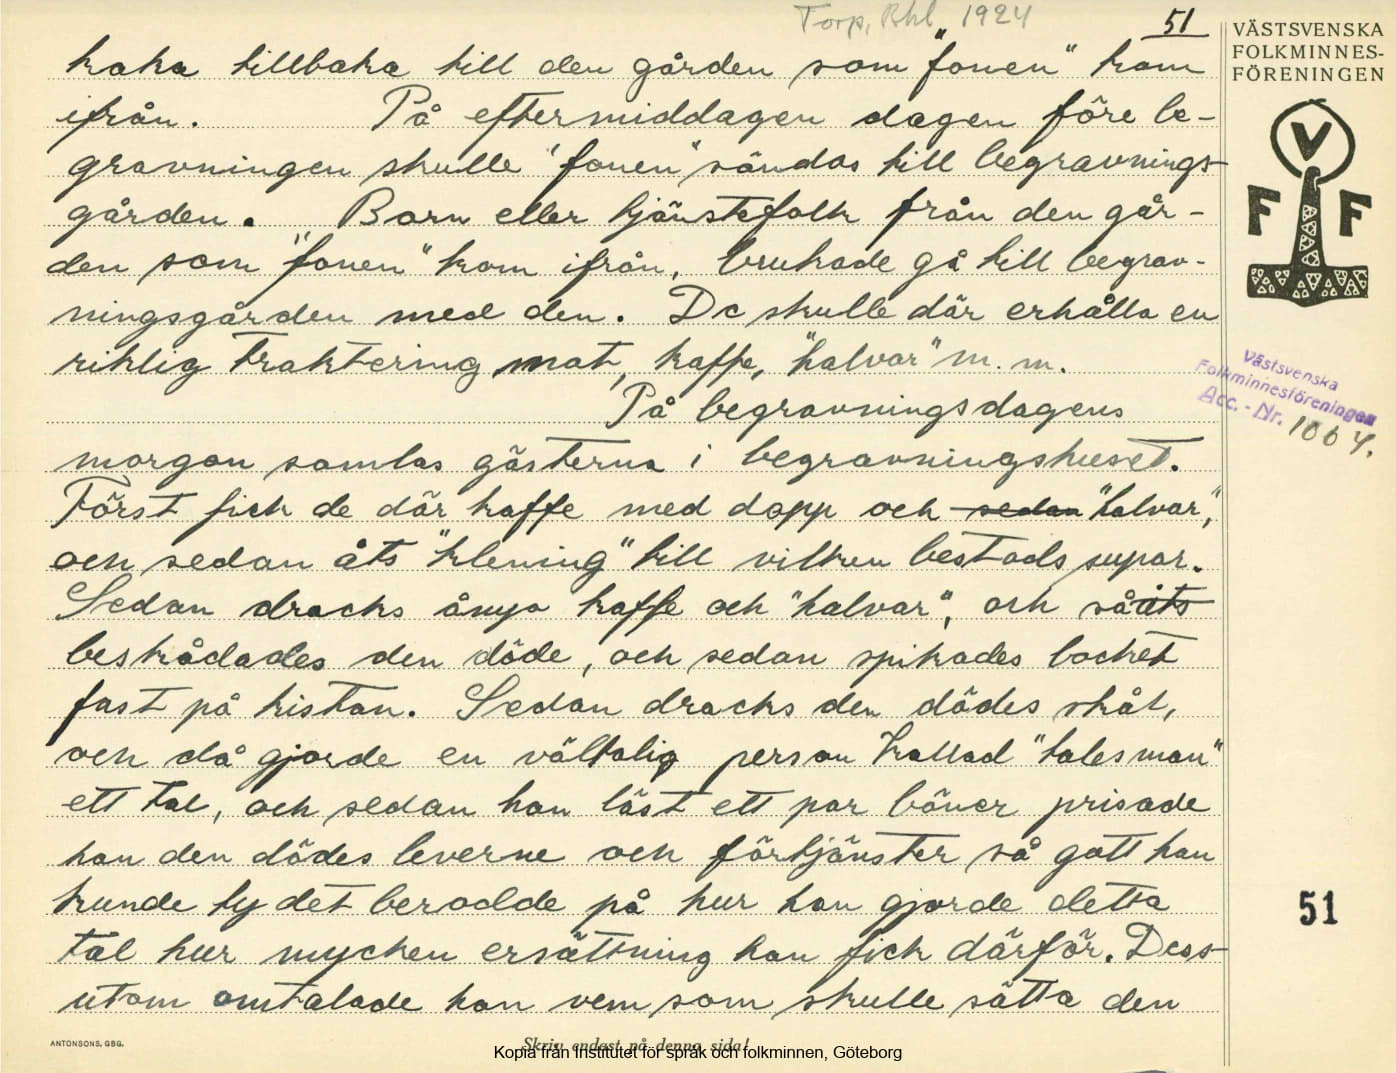 Torp, Bhl. 1924
51
VÄSTSVENSKA
FOLKMINNES-
FÖRENINGEN
V
F F
kaka tillbaka till den gården som "fonen" kom
ifrån. På eftermiddagen dagen före be-
gravningen skulle "fonen" sändas till begravnings-
gården. Barn eller tjänstefolk från den går-
den som "fonen" kom ifrån, brukade gå till begrav-
ningsgården med den. De skulle där erhålla en
riklig traktering mat, kaffe, "halvar" m. m.
På begravningsdagens
morgon samlas gästerna i begravningshuset.
Först fick de där kaffe med dopp och sedan "halvar",
och sedan åts "klening" till vilken bestods supar.
Sedan dracks ånyo kaffe och "halvar", och så åts
beskådades den döde, och sedan spikades locket
fast på kistan. Sedan dracks den dödes skål,
och då gjorde en vältalig person kallad "talesman"
ett tal, och sedan han läst ett par böner prisade
han den dödes leverne och förtjänster så gott han
kunde ty det berodde på hur han gjorde detta
tal hur mycken ersättning han fick därför. Dess-
utom omtalade han vem som skulle sätta den
Västsvenska
Folkminnesföreningen
Acc. - Nr. 1004.
51
ANTONSONS, GBG.
Skriv endast på denna sida!
Kopia från Institutet för språk och folkminnen, Göteborg